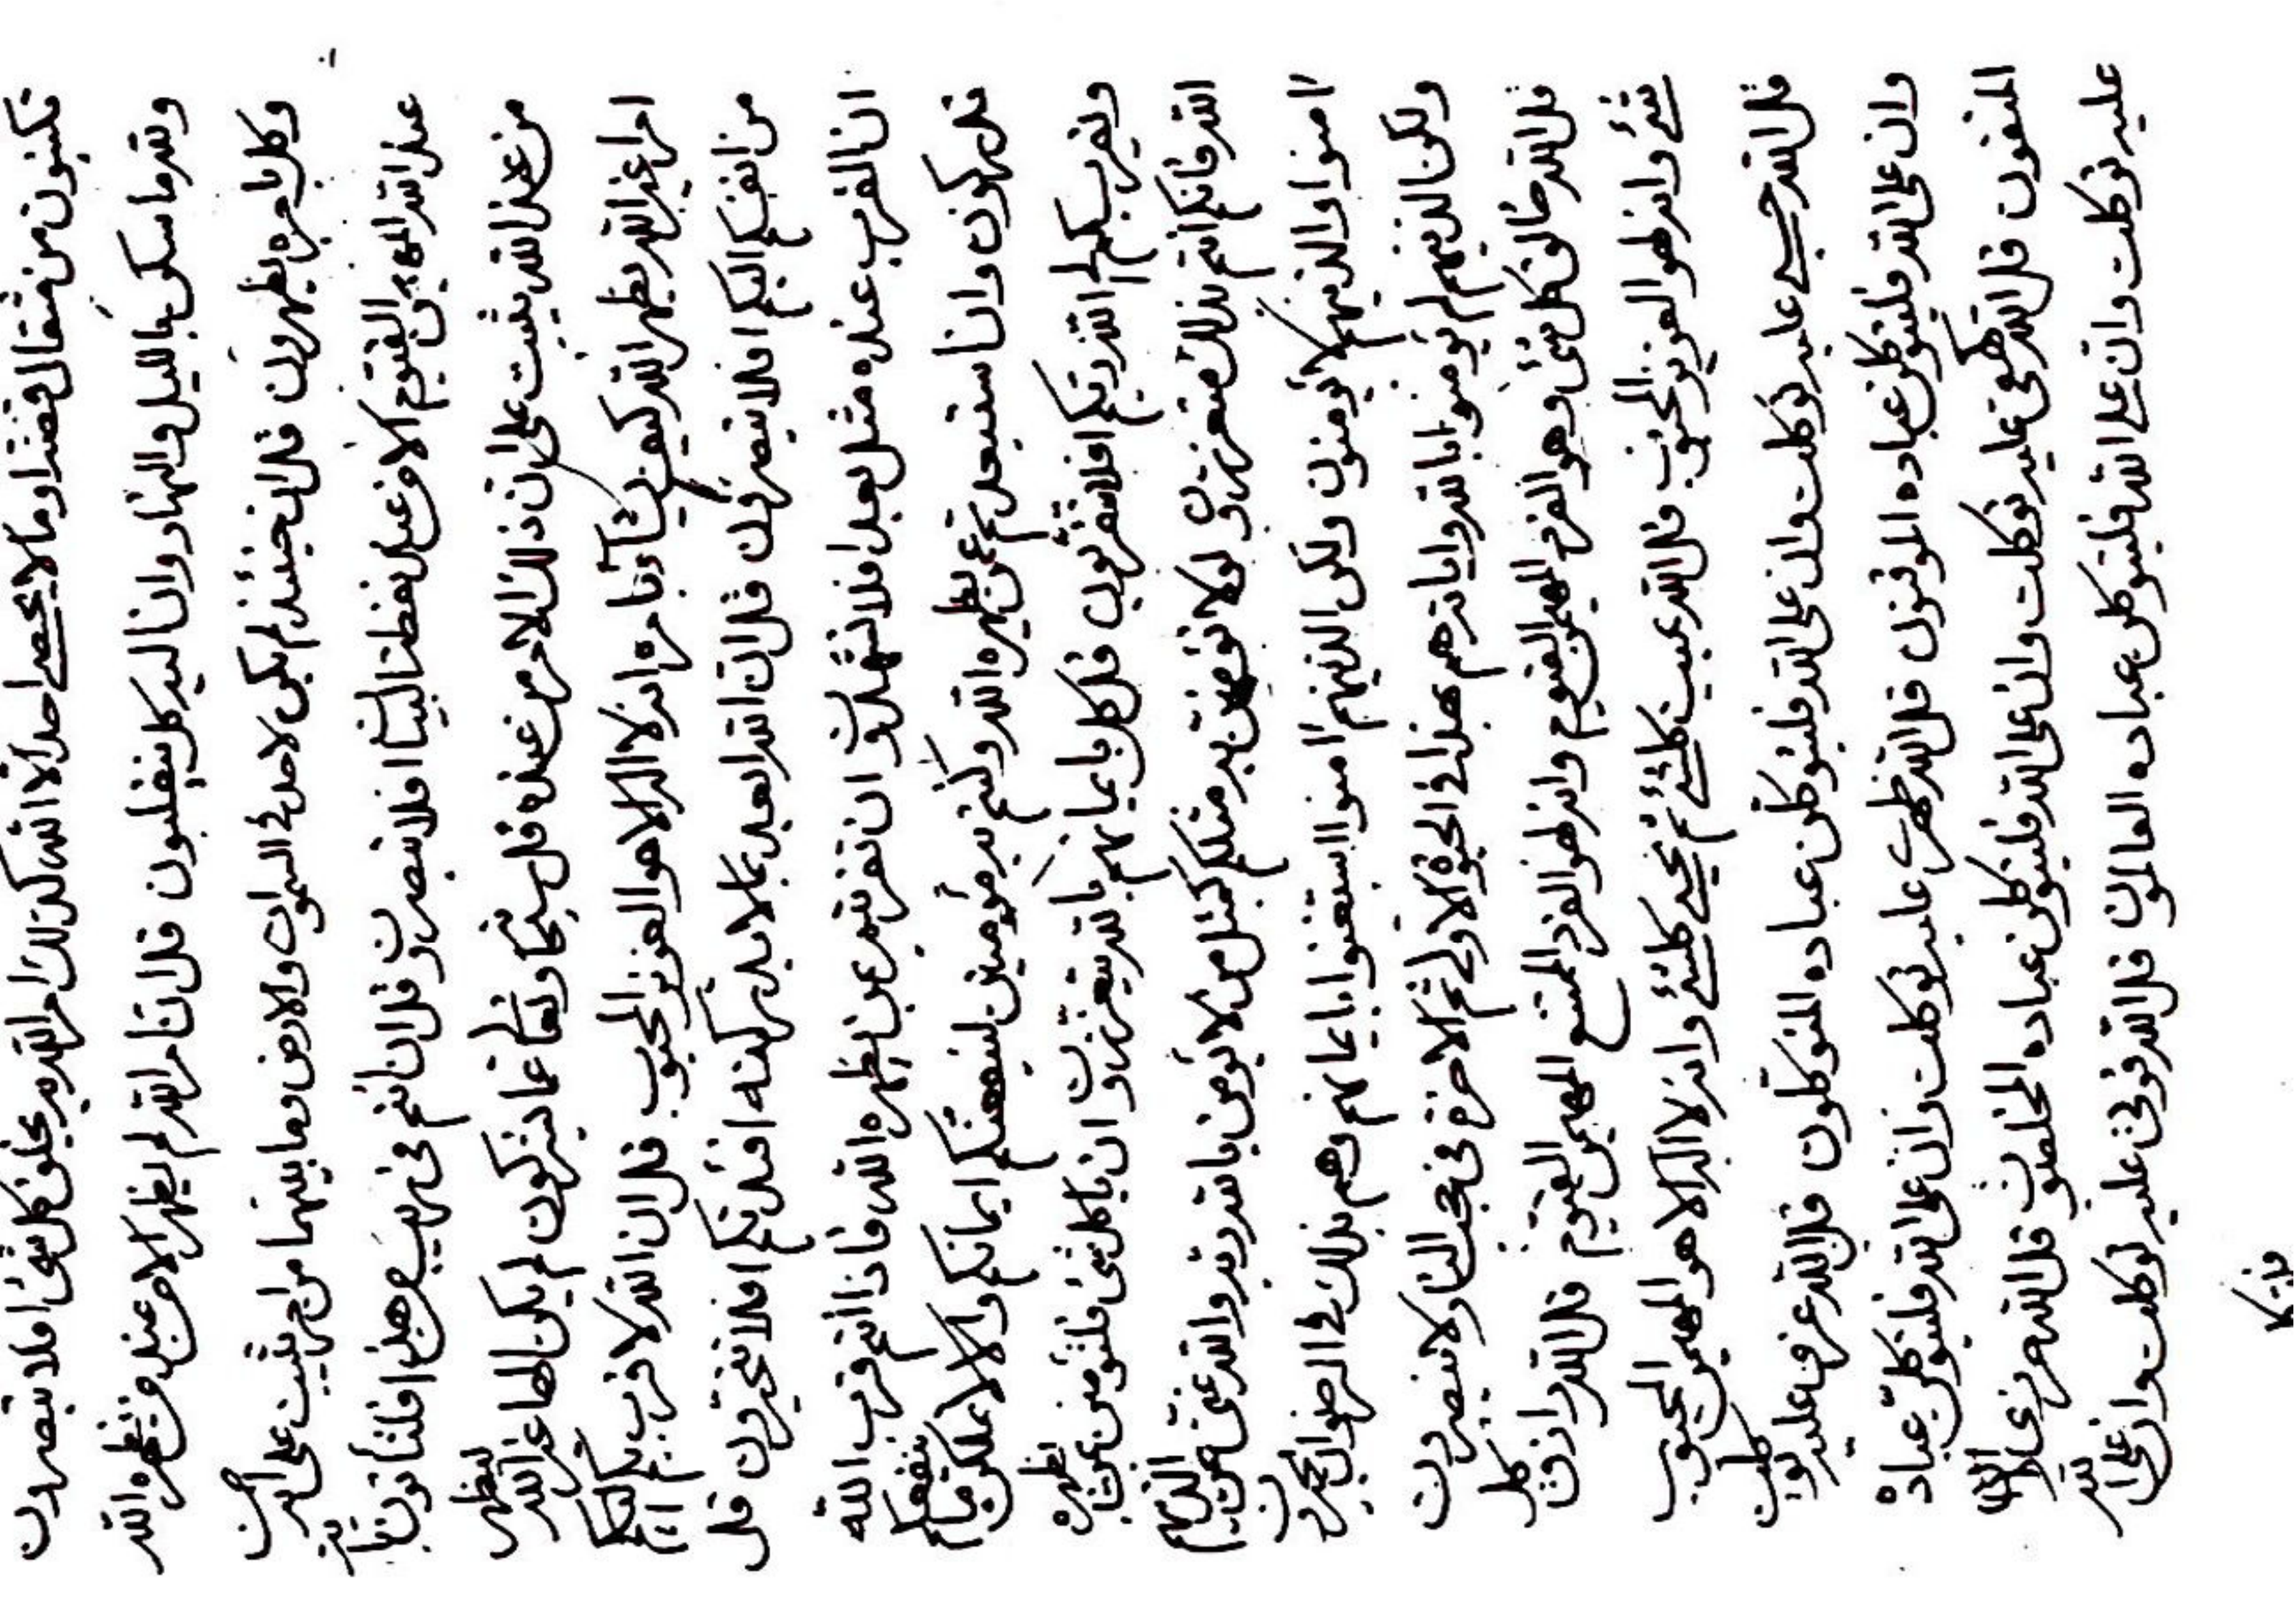 تكسبون من مثقال وما لا يحصي احد الا الله كذلك امر الله يخلق كل شئ افلا تبصرون
ولله ما سكن بالليل والنهار وان اليه كل ينقلبون قل ان امر الله لم يظهر الا من عند من يظهره الله
وكل بامره يظهرون قل ان حينئذ لم يكن لاحد في السموات والارض وما بينهما من امر يثبت على انه من
عند الله المهيمن القيوم الا من عند نقطة البيان افلا تبصرون قل ان انتم في ريب من هذا فلتأتون بأمر
من عند الله يثبت على ان ذلك الامر من عنده قل سبحانه وتعالى عما تذكرون لم يكن الها غير الله ليظهر
امرا غير الله يظهر الله كيف يشاء بامره انه لا اله الا هو العزيز المحبوب قل ان الله لاقرب بكم اليكم
من انفسكم اليكم افلا تبصرون قل ان الله ابعد بما لا يدركنه افئدتكم افلا تتحيرون قل
ان القرب عنده مثل بعد افلا تشهدون ان تقربتم بمن يظهره الله فاذا انتم قرب الله
تدركون وان استبعدتم عمن يظهره الله وكنتم به مؤمنين لينفعنكم ايمانكم والا لا يملكن ينفعكم
ويقرب بكم الى الله ربكم افلا تتقربون قل كل بايمانهم بالله يتعززون ان يا كلشئ فلتؤمنن بمن يظهره
الله فانكم انتم بذلك متعززون ولا مثلكم كمثل من لا يؤمن بالله ربه والله غني عن الذينهم
امنوا والذينهم لا يؤمنون ولكن الذينهم امنوا استغنوا بايمانهم وهم بذلك في الرضوان يحبرون
ولكن الذينهم لم يؤمنوا بالله واياته هم بهذا في الحيوة الاولى ثم الاخرة في حجب النار ولا ينصرون
قل الله خالق كل شئ وهو الفرد المهيمن القيوم وانه لهو الفرد الممتنع المهيمن القيوم قل الله رازق كل
شئ وانه لهو العزيز المحبوب قل الله يميت كلشئ ثم يحيي كلشئ وانه لا اله الا هو المهيمن المحبوب
قل الله حسبي عليه توكلت وان على الله فليتوكلن عباده المتوكلون قل الله عزي عليه توكلت
وان على الله فليتوكلن عباده الموقنون قل الله ظهري عليه توكلت وان على الله فليتوكلن عباده
المتقون قل الله كهفي عليه توكلت وان على الله فليتوكلن عباده المخلصون قل الله
عليه توكلت وان على الله فليتوكلن عباده العالمون قل الله قوتي عليه توكلت وان على الله